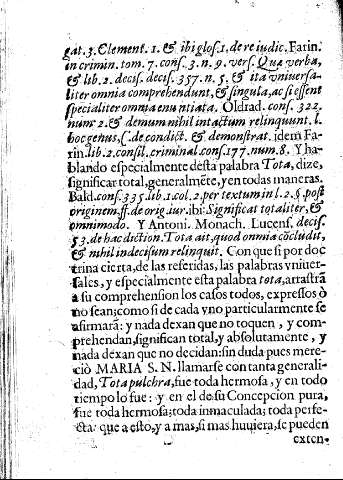 gat. 3. Clement. 1. & ibi glos. 1. de re iudic. Farin.
in crimin. tom. 7. cons. 3. n. 9. vers. Qua verba,
& lib. 2. decis. decis. 357. n. 5. & ita vniuersa-
liter omnia comprehendunt, & singula, ac si essent
specialiter omnia enuntiata. Oldrad. cons. 322.
num. 2. & demum nihil intactum relinquunt. l.
hoc genus, ff. de condict. & demonstrat. idem Fa-
rin. lib. 2. consil. criminal. cons. 177. num. 8. Y ha-
blando especialmente desta palabra Tota, dize,
significar total, generalmẽte, y en todas maneras.
Bald. cons. 335. lib. 1. col. 2. per textum in l. 2. §. post
originem, ff. de orig. iur. ibi: Significat totaliter, &
omnimodo. Y Antoni. Monach. Lucens. decis.
53. de hac diction. Tota ait, quod omnia cõcludit,
& nihil indecisum relinquit. Con que si por doc
trina cierta, de las referidas, las palabras vniuer-
sales, y especialmente esta palabra tota, arrastrã
a su comprehension los casos todos, expressos ò
no sean; como si de cada vno particularmente se
afirmarã: y nada dexan que no toquen, y com-
prehendan, significan total, y absolutamente, y
nada dexan que no decidan: sin duda pues mere-
ciò MARIA S. N. llamarse con tanta generali-
dad, Tota pulchra, fue toda hermosa, y en todo
tiempo lo fue: y en el de su Concepcion pura,
fue toda hermosa; toda inmaculada; toda perfe-
cta: que a esto, y a mas, si mas huuiera, se pueden
exten-